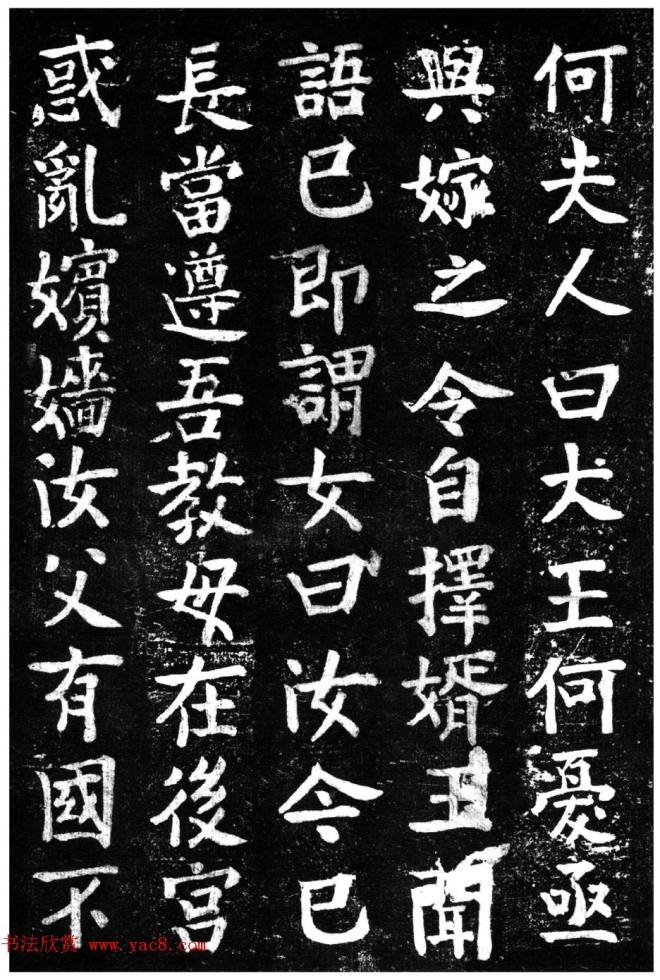 何夫人曰大王何憂亟
與嫁之令自擇婿王聞
語已即謂女曰汝今已
長當遵吾教毋在後宫
惑亂嬪嬙汝父有國不
书法欣赏 www.yac8.com